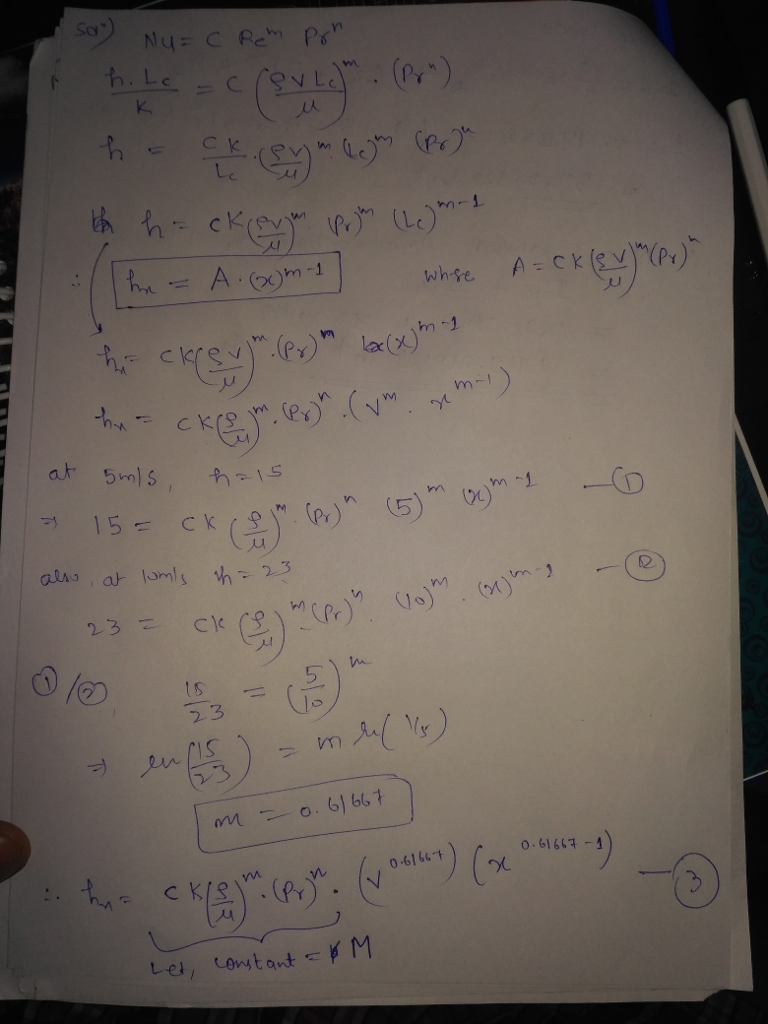 Sol⁽ⁿ⁾) Nu = C Re^m Pr^n
h.Lc/K = C (ρVLc/μ)^m . (Pr^n)
h = CK/Lc . (ρV/μ)^m (Lc)^m (Pr)^n
h = CK(ρV/μ)^m (Pr)^m (Lc)^m-1
∴ hx = A.(x)^m-1 where A = CK(ρV/μ)^m (Pr)^n
hx = CK(ρV/μ)^m . (Pr)^m (x)^m-1
hx = CK(ρ/μ)^m . (Pr)^n . (V^m . x^m-1)
at 5m/s, h=15
⇒ 15 = CK(ρ/μ)^m . (Pr)^n (5)^m (x)^m-1 — ①
also, at 10m/s h=23
23 = CK(ρ/μ)^m . (Pr)^n . (10)^m . (x)^m-1 — ②
①/②, 15/23 = (5/10)^m
⇒ ln(15/23) = m ln(1/5)
m = 0.61667
∴ hx = CK(ρ/μ)^m . (Pr)^n . (V^0.61667) (x^0.61667-1) — ③
Let, constant = M